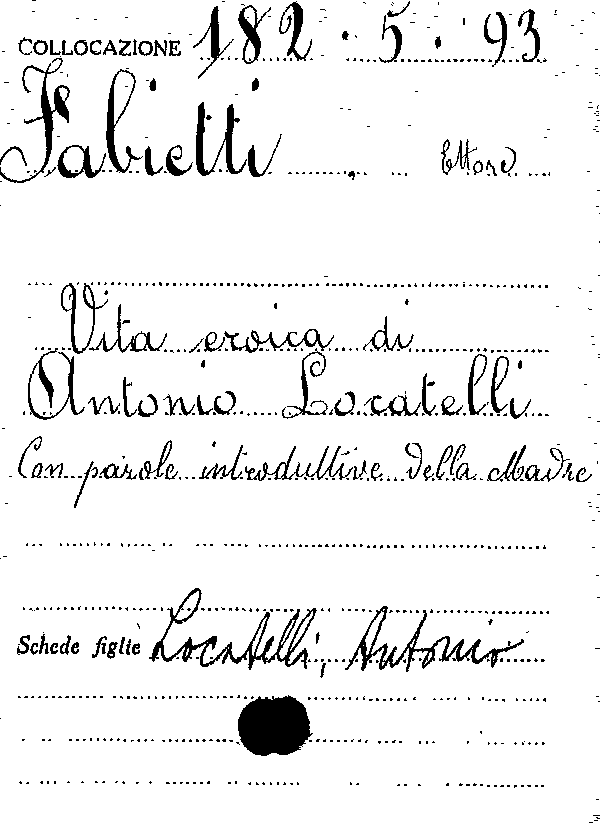 COLLOCAZIONE 182.5.93
Fabietti, Ettore
Vita eroica di
Antonio Locatelli
Con parole introduttive della Madre
Schede figlie Locatelli, Antonio